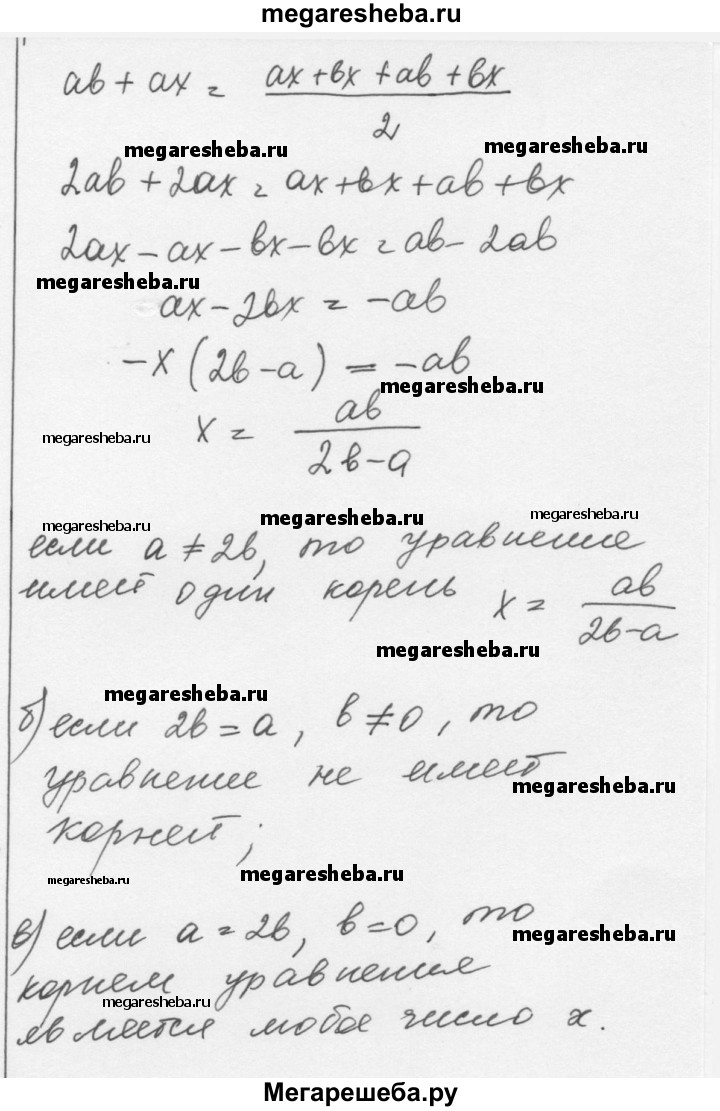 megaresheba.ru
ab + ax = (ax + bx + ab + bx) / 2
megaresheba.ru megaresheba.ru
2ab + 2ax = ax + bx + ab + bx
2ax - ax - bx - bx = ab - 2ab
megaresheba.ru
ax - 2bx = -ab
-x (2b - a) = -ab
megaresheba.ru
x = ab / (2b - a)
megaresheba.ru
megaresheba.ru megaresheba.ru megaresheba.ru
если a ≠ 2b, то уравнение
имеет один корень x = ab / (2b - a)
megaresheba.ru
megaresheba.ru
б) если 2b = a, b ≠ 0, то
уравнение не имеет
megaresheba.ru
корней;
megaresheba.ru megaresheba.ru
в) если a = 2b, b = 0, то
megaresheba.ru
корнем уравнения
megaresheba.ru
является любое число x.
Мегарешеба.ру